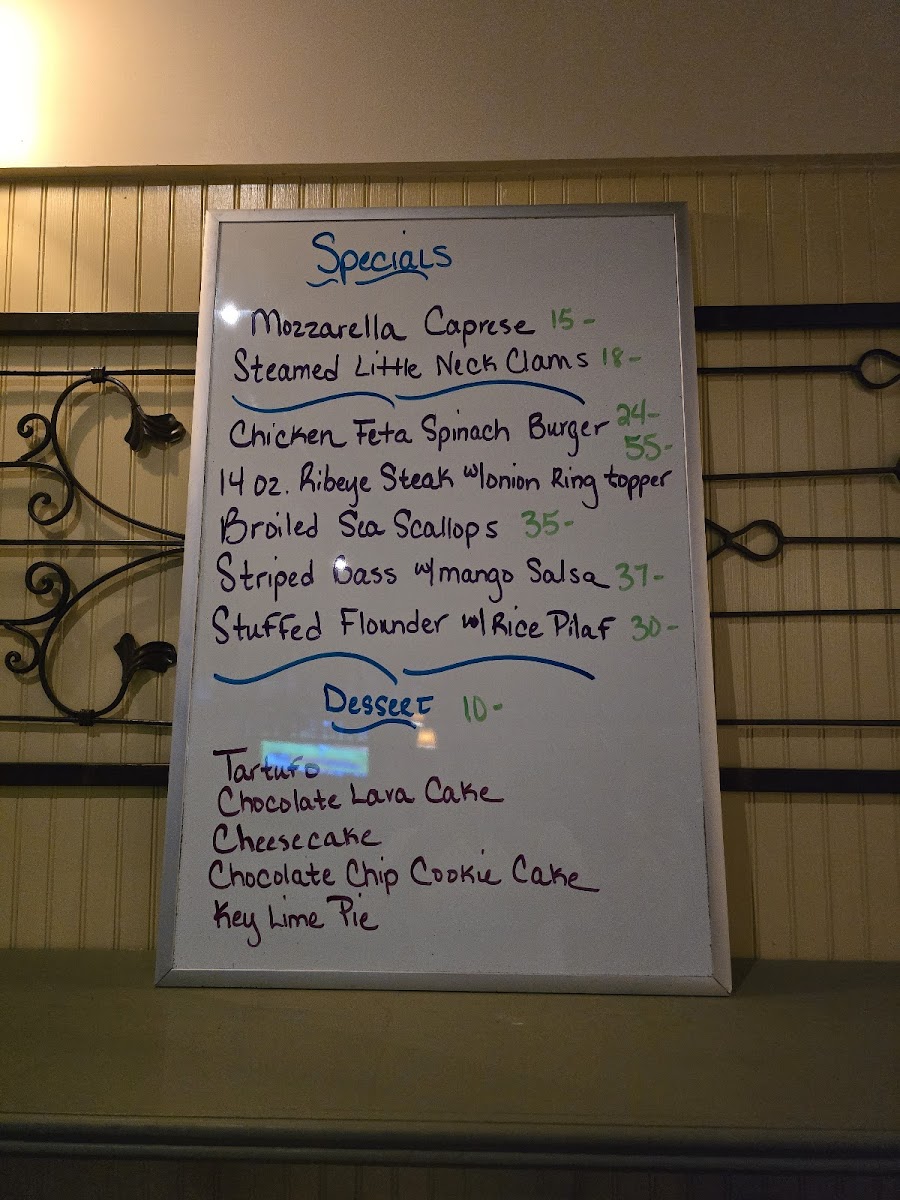 Specials
Mozzarella Caprese 15-
Steamed Little Neck Clams 18-
Chicken Feta Spinach Burger 24-
55-
14 oz. Ribeye Steak w/onion Ring topper
Broiled Sea Scallops 35-
Striped Bass w/mango Salsa 37-
Stuffed Flounder w/Rice Pilaf 30-
Dessert 10-
Tartufo
Chocolate Lava Cake
Cheesecake
Chocolate Chip Cookie Cake
Key Lime Pie